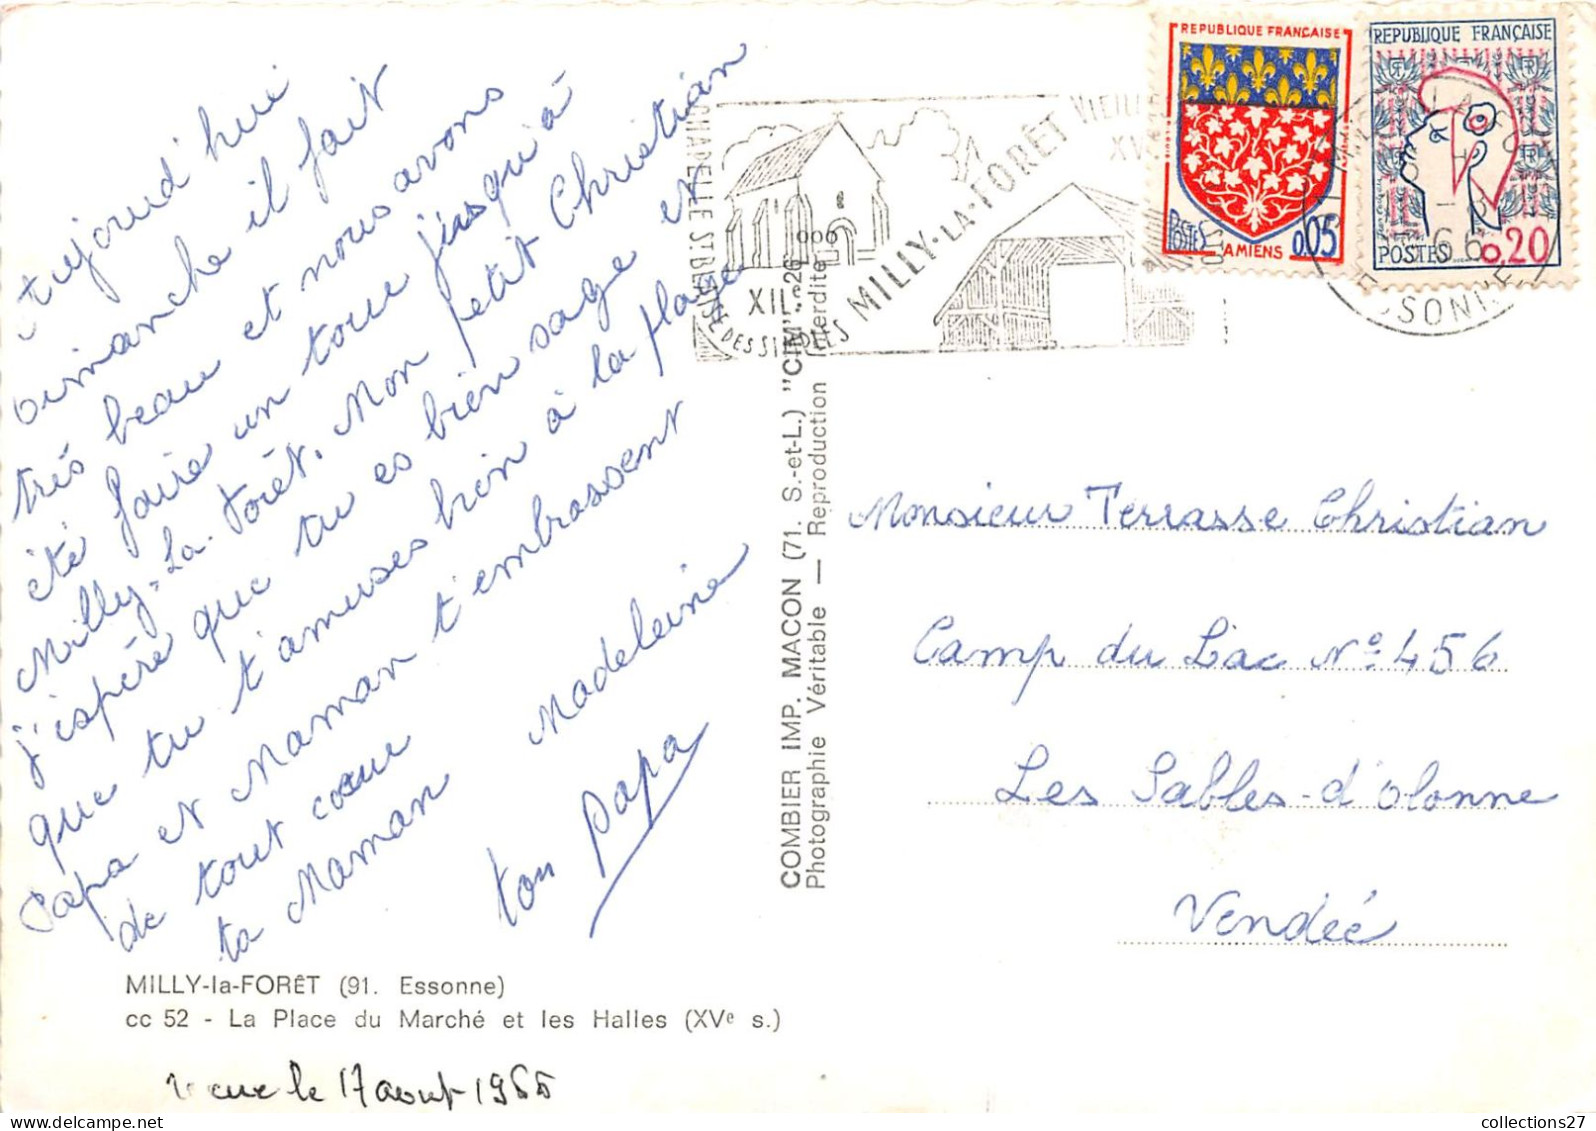 Aujourd'hui
dimanche il fait
très beau et nous avons
été faire un tour jusqu'à
Milly-La-Forêt. Mon petit Christian
j'espère que tu es bien sage et
que tu t'amuses bien à la plage
Papa et Maman t'embrassent
de tout cœur
ta Maman Madeleine
ton Papa
MILLY-la-FORÊT (91. Essonne)
cc 52 - La Place du Marché et les Halles (XVe s.)
le 17 aout 1966
COMBIER IMP. MACON (71. S.-et-L.) "CIM"
Photographie Véritable — Reproduction interdite
CHAPELLE ST BLAISE DES SIMPLES
XII
MILLY-LA-FORÊT
REPUBLIQUE FRANÇAISE
POSTES
AMIENS
0,05
REPUBLIQUE FRANÇAISE
POSTES
0,20
ESSONNE
Monsieur Terrasse Christian
Camp du Lac No 456
Les Sables-d'olonne
Vendée
collections27